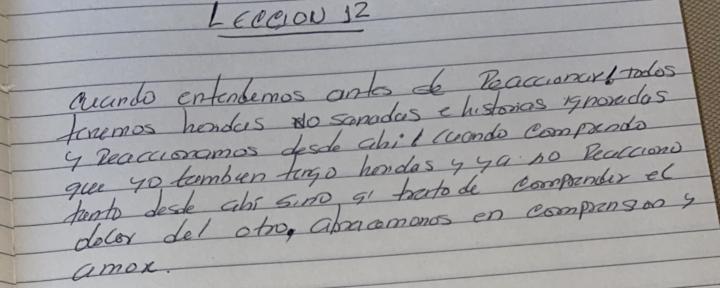 LECCION 12
Cuando entendemos antes de Reaccionar, todos
tenemos heridas No sanadas e historias ignoradas
y Reaccionamos desde ahi. Cuando comprendo
que yo tambien tengo heridas y ya no Reacciono
tanto desde ahi sino si trato de comprender el
dolor del otro, abracemonos en comprension y
amor.